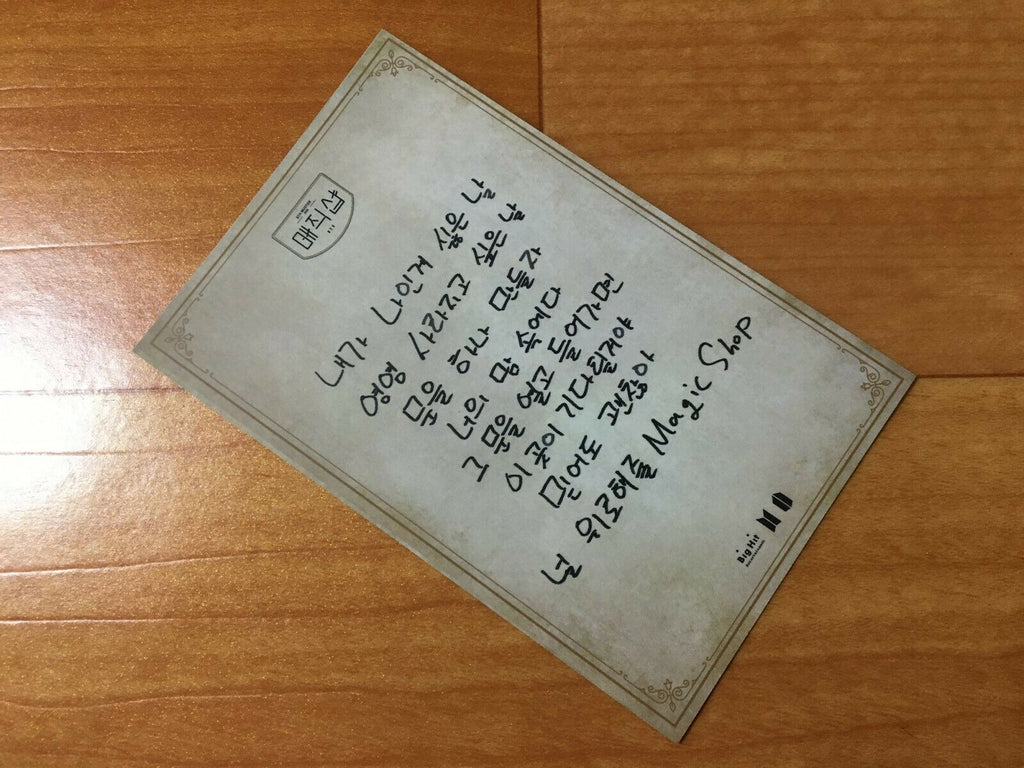 내가 나인게 싫은 날
영영 사라지고 싶은 날
문을 하나 만들자
너의 맘 속에다
그 문을 열고 들어가면
이 곳이 기다릴거야
믿어도 괜찮아
널 위로해줄 Magic Shop
Big Hit
Entertainment